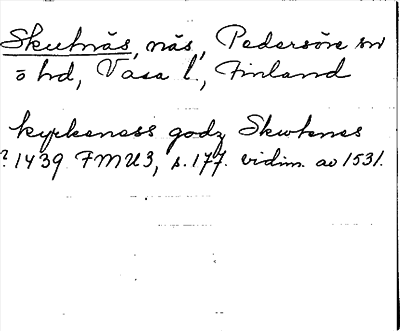 Skutnäs, näs, Pedersöre sn
ö hd, Vasa l., Finland
kyrkeness godz Skwtenes
? 1439 FMU3, s. 177. vidim. av 1531.